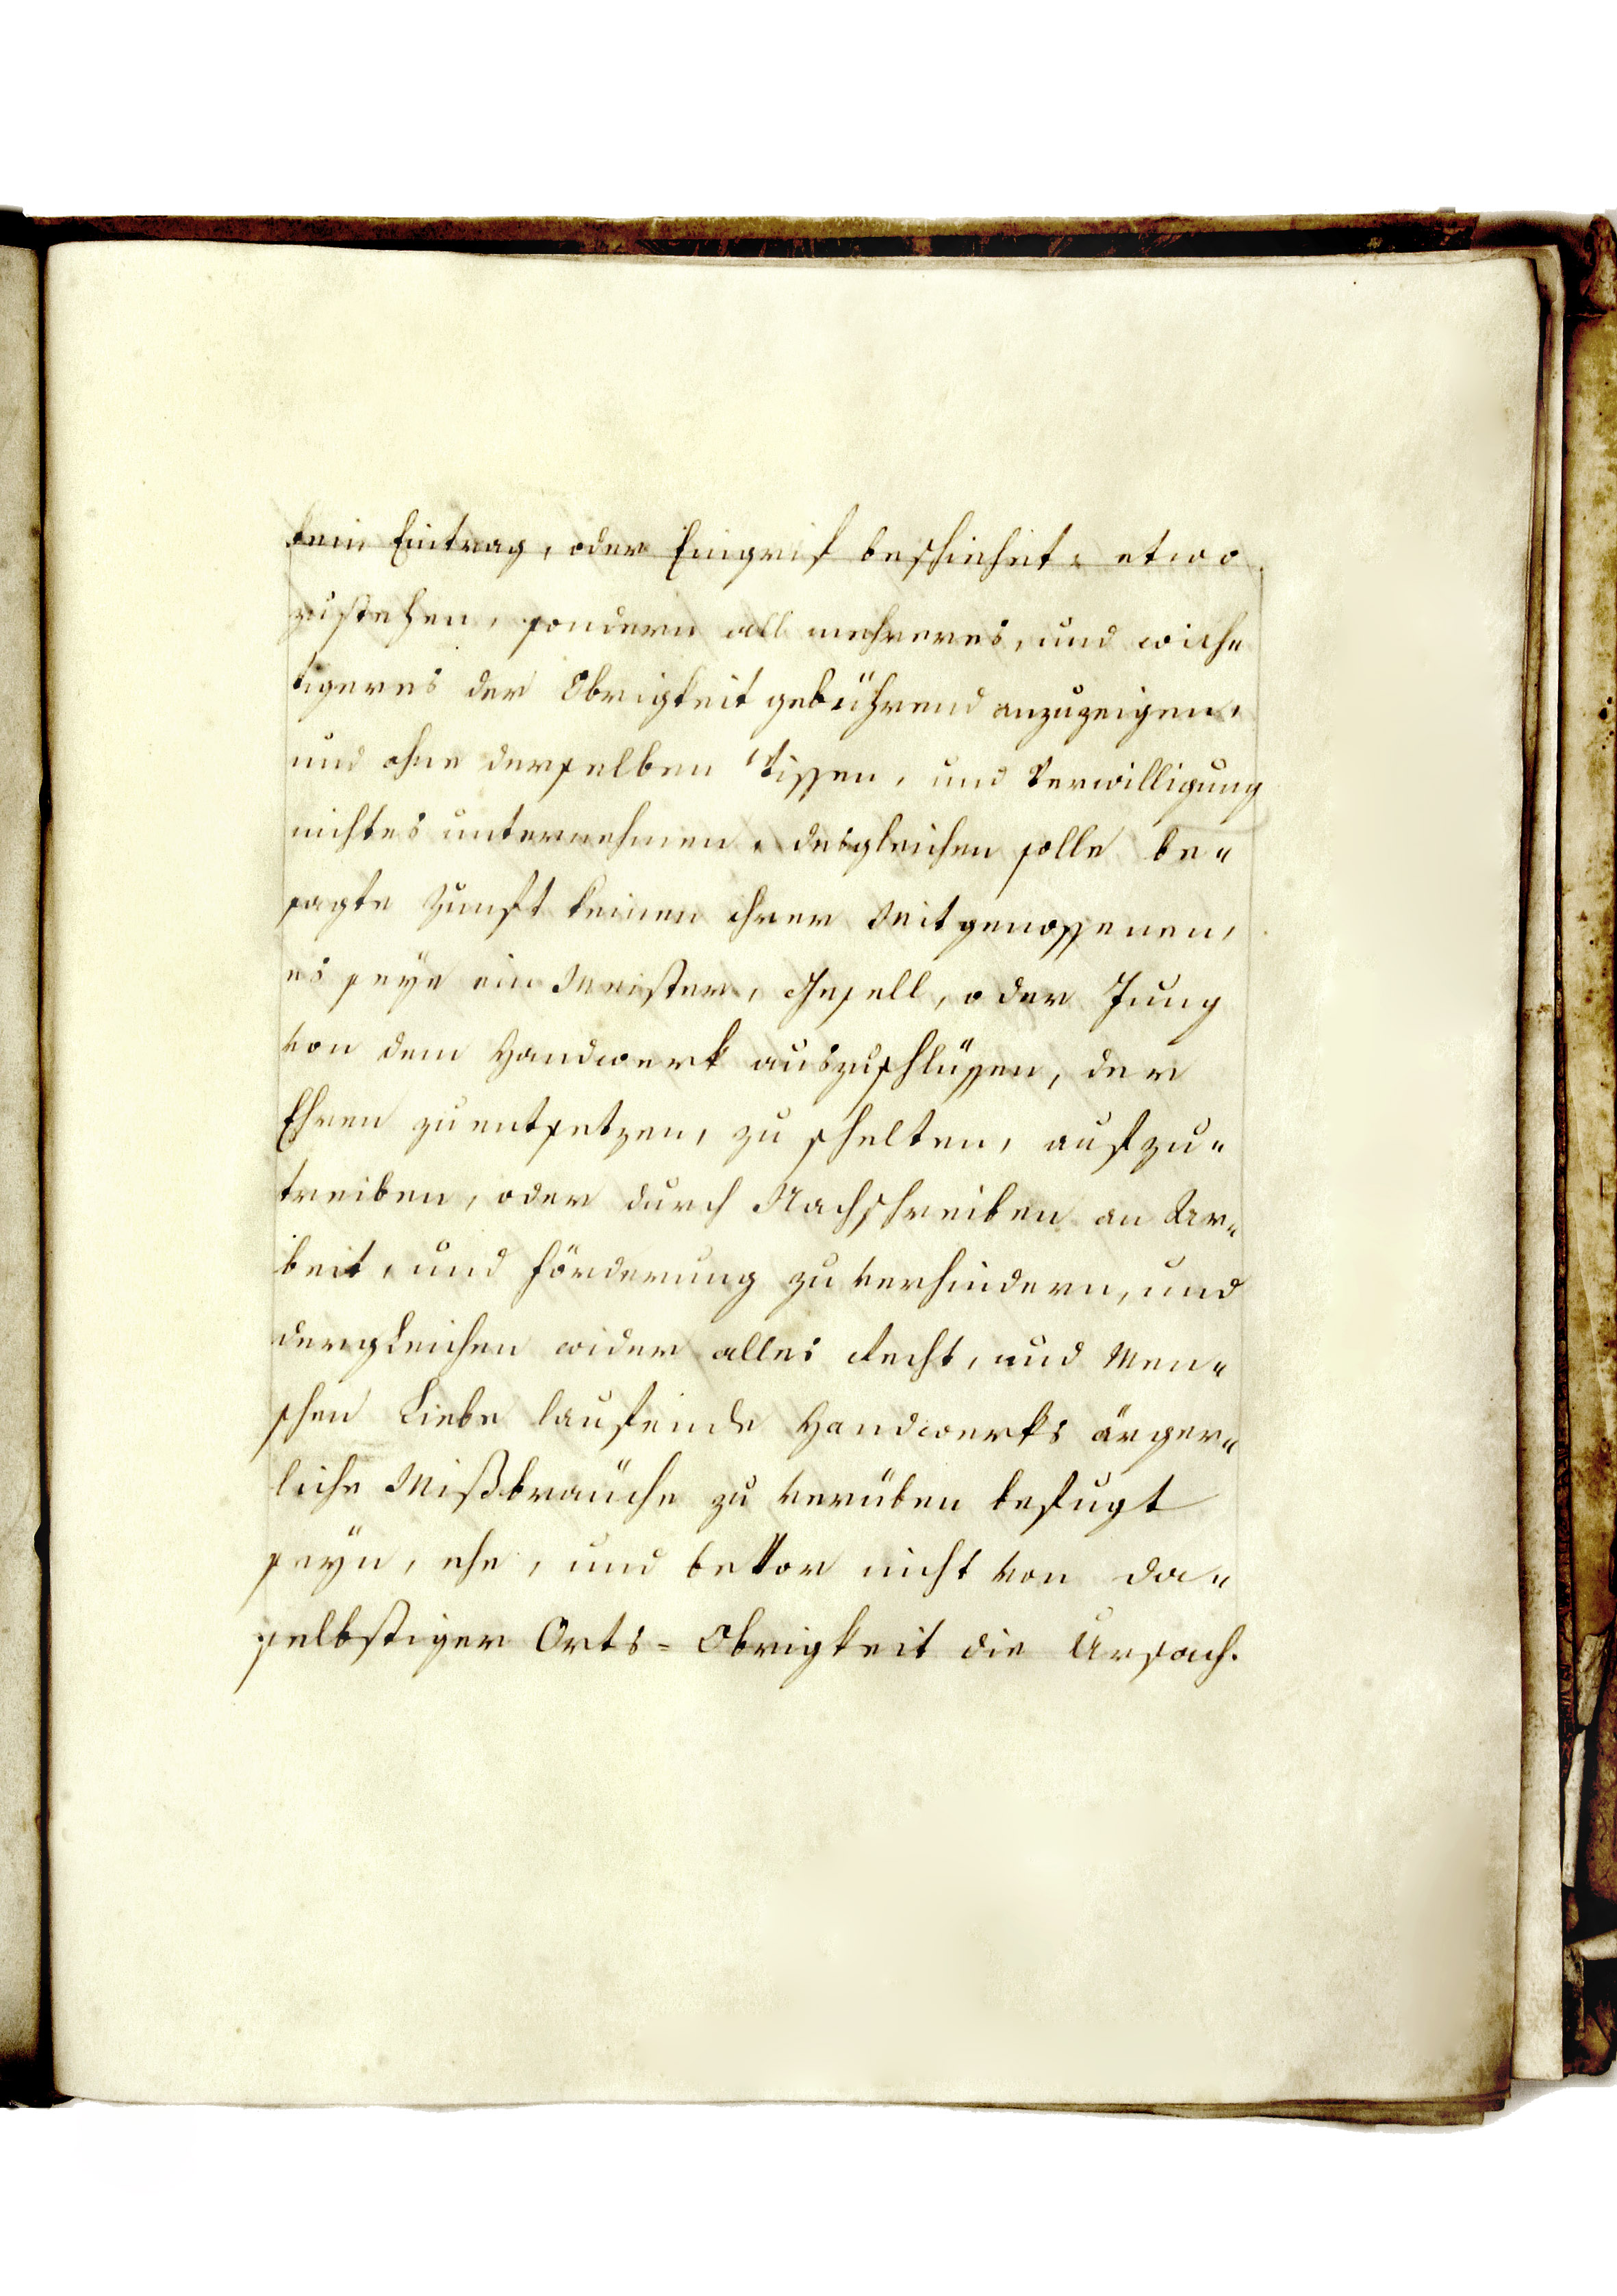 kein Eintrag, oder Eingrif beschiehet, etwo
zustehen, sondern all mehreres, und wich„
tigeres der Obrigkeit gebührend anzuzeigen,
und ohne derselben Wissen, und Verwilligung
nichtes unternehmen, desgleichen solle be„
sagte Zunft keinen ihrer Mitgenossenen,
es seye ein Meister, Gesell, oder Jung
von dem Handwerk auszuschlüssen, der
Ehren zu entsetzen, zu schelten, aufzu„
treiben, oder durch Nachschreiben an Ar„
beit, und Förderung zu verhindern, und
dergleichen wider alles Recht, und Men„
schen Liebe laufende Handwerks ärger„
liche Mißbraüche zu verüben befugt
seÿn, ehe, und bevor nicht von da„
selbstiger Orts=Obrigkeit die Ursach.